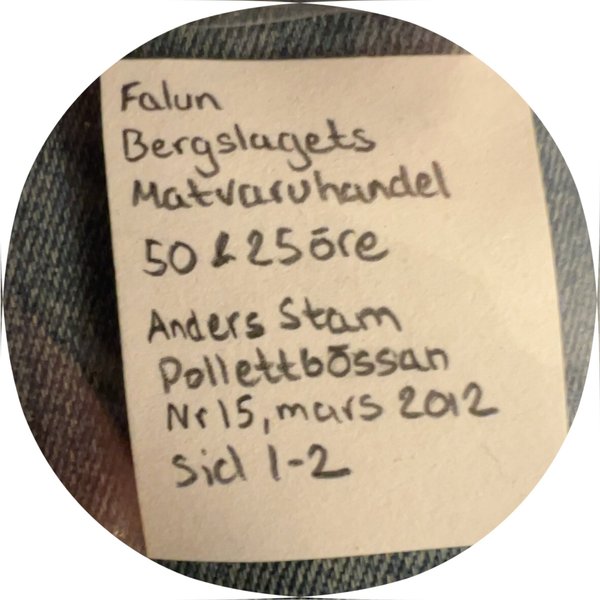 Falun
Bergslagets
Matvaruhandel
50 & 25 öre
Anders Stam
Pollettbössan
Nr 15, mars 2012
Sid 1-2